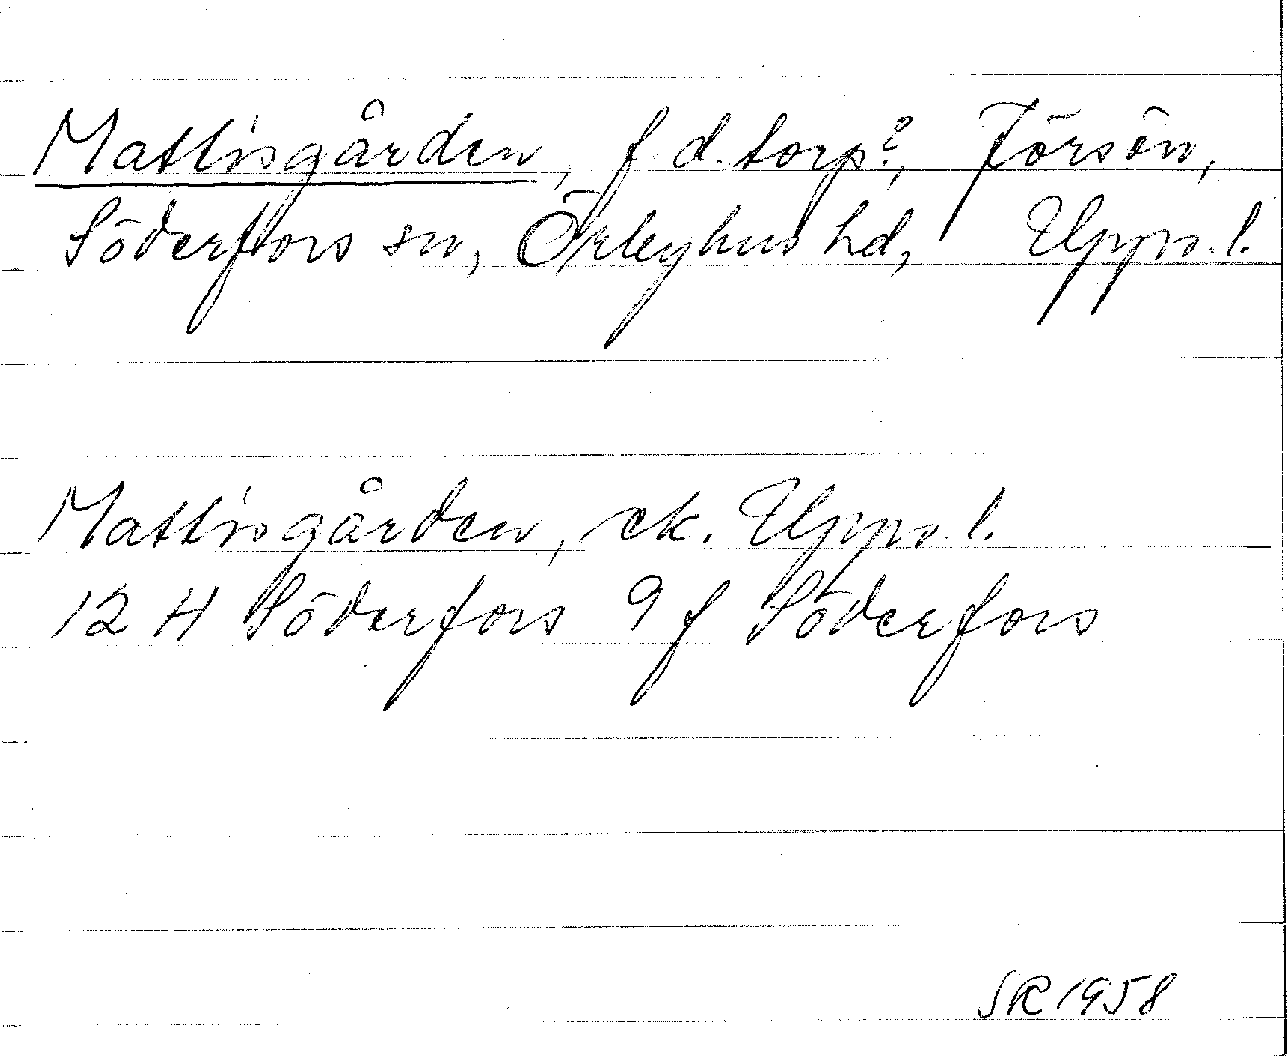 Mattisgården, f. d. torp?, Jörsön,
Söderfors sn, Örbyhus hd, Upps. l.
Mattisgården, ek. Upps. l.
12 H Söderfors 9 f Söderfors
SR 1958